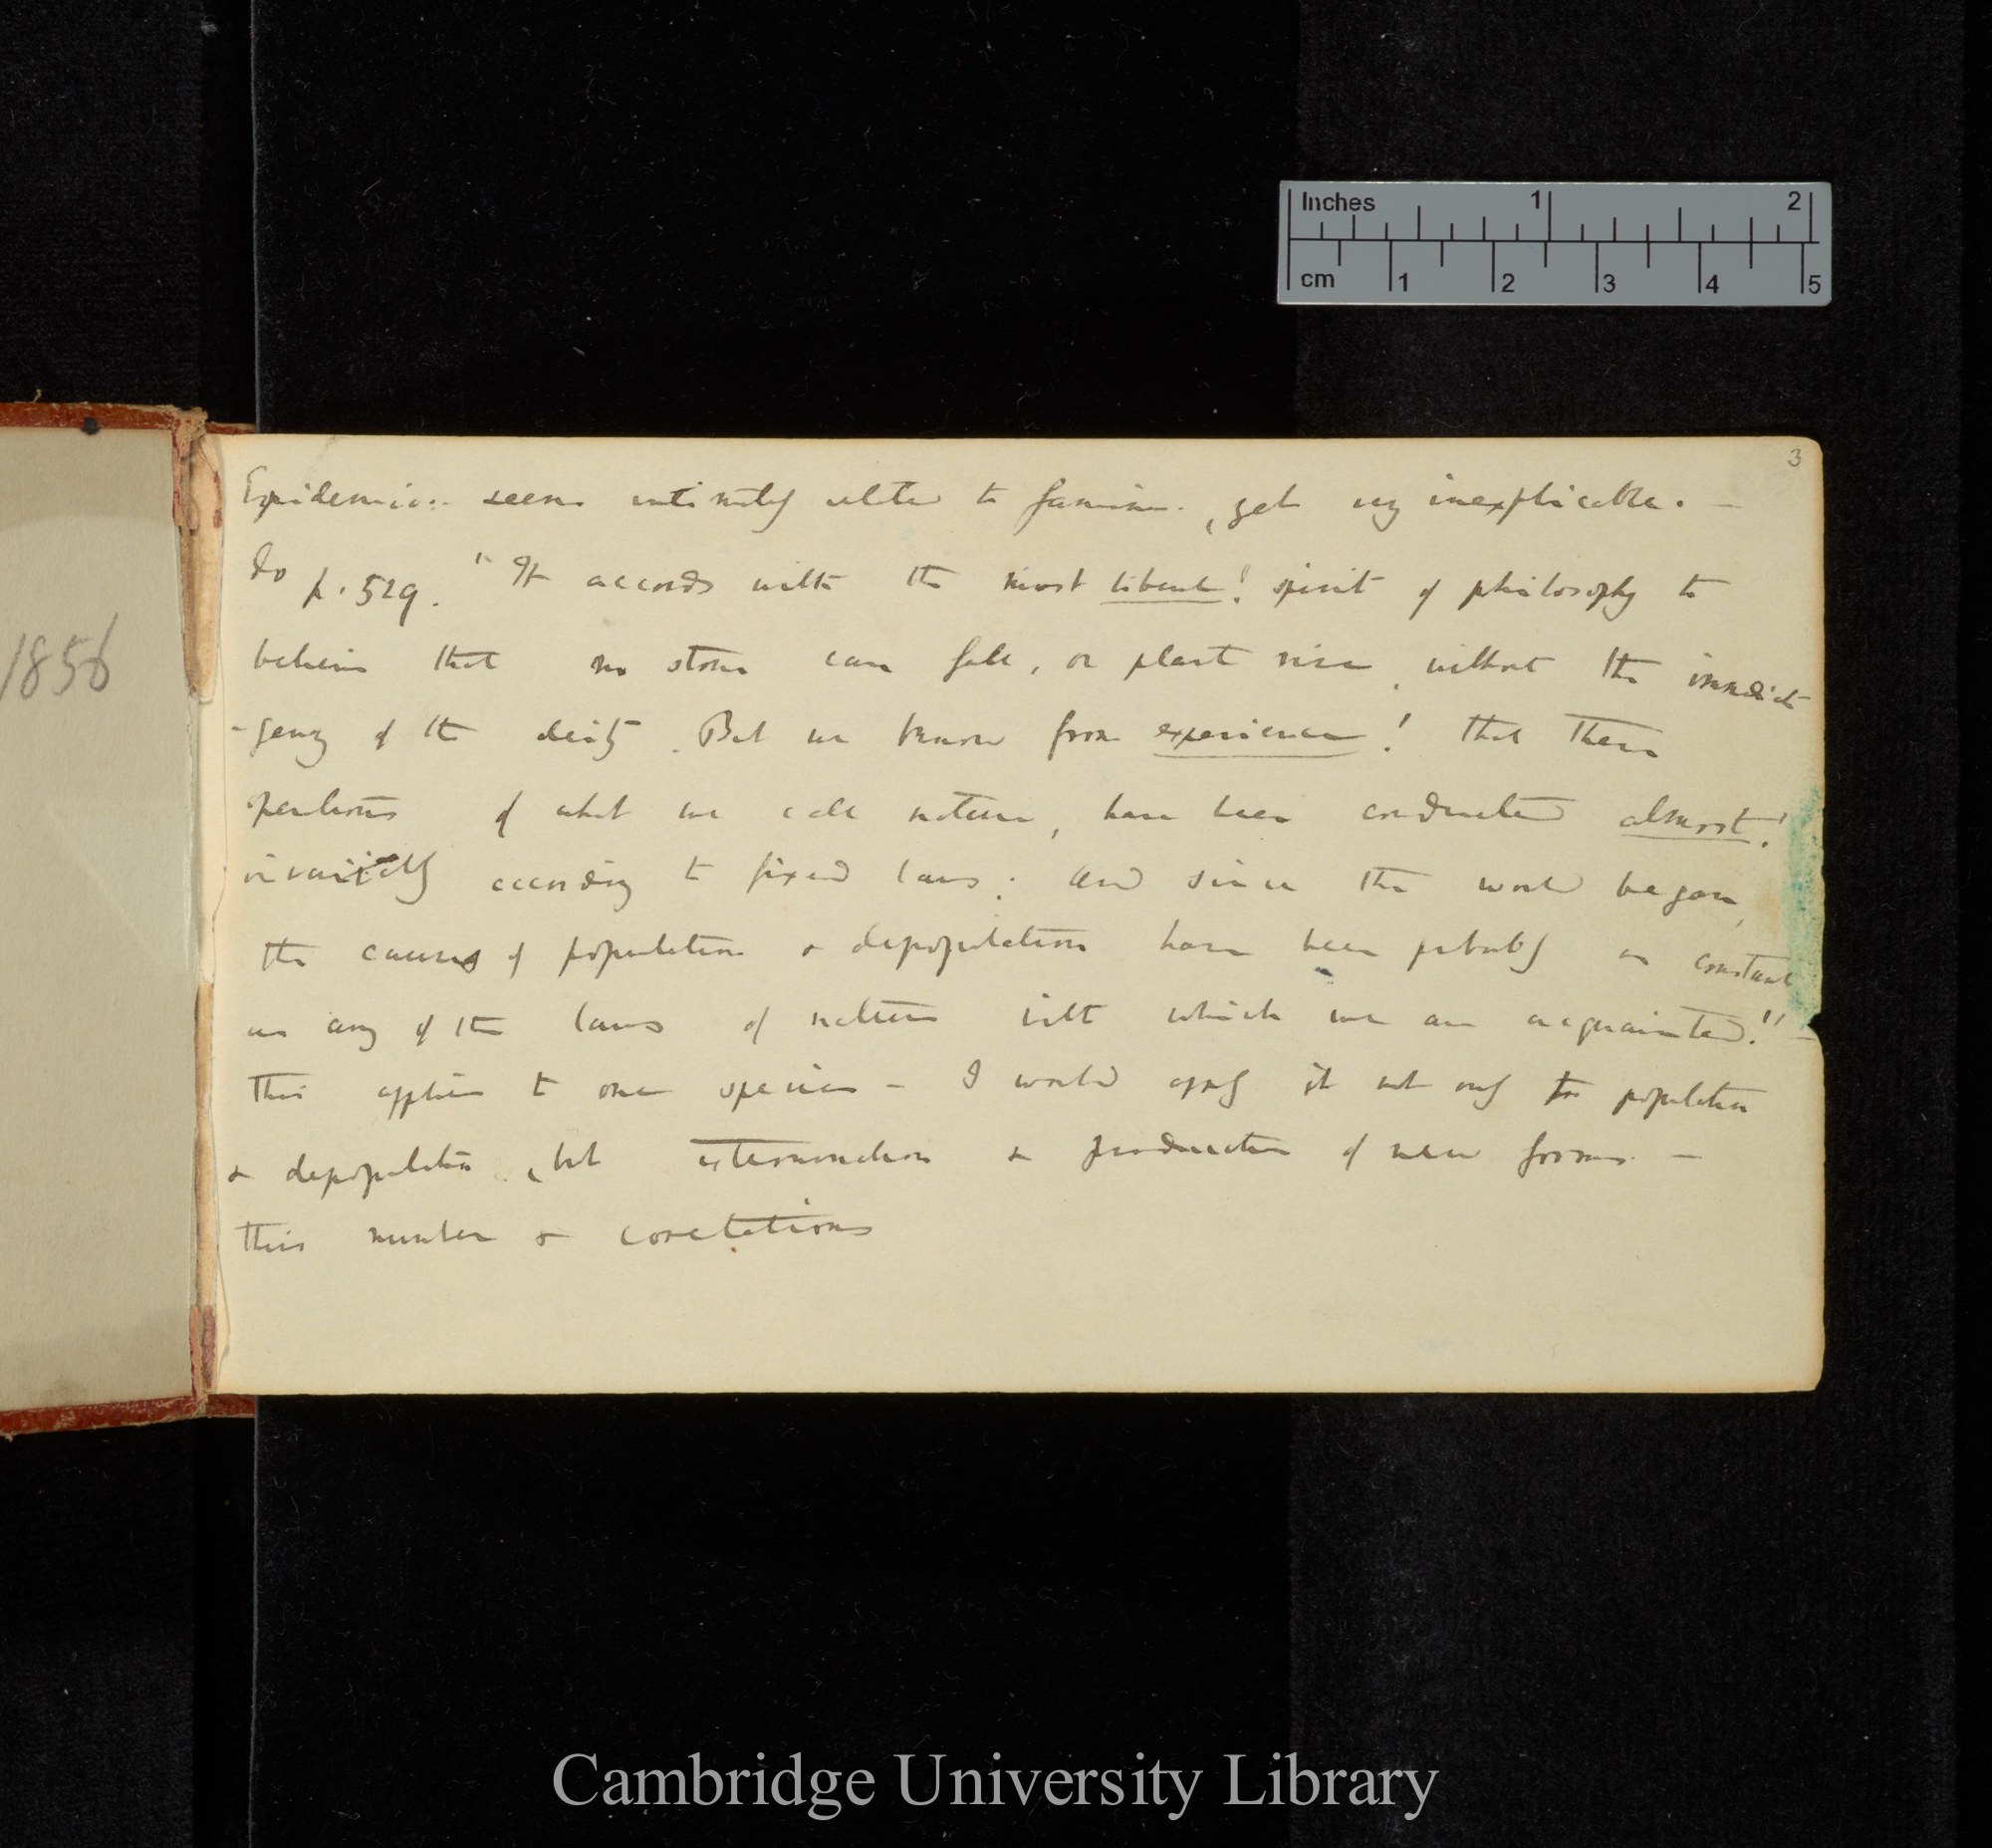 Inches 1 2
cm 1 2 3 4 5
3
1856
Epidemics seem intimately related to famine, yet very inexplicable. —
do p. 529. "It accords with the most liberal! spirit of philosophy to
believe that no stone can fall, or plant rise, without the immediate
-gency of the deity. But we know from experience! that these
operations of what we call nature, have been conducted almost!
invariably according to fixed laws: and since the world began,
the causes of population & depopulation have been probably as constant
as any of the laws of nature with which we are acquainted." —
this applies to one species — I would apply it not only to population
& depopulation, but extermination & production of new forms. —
this number & corelations
Cambridge University Library